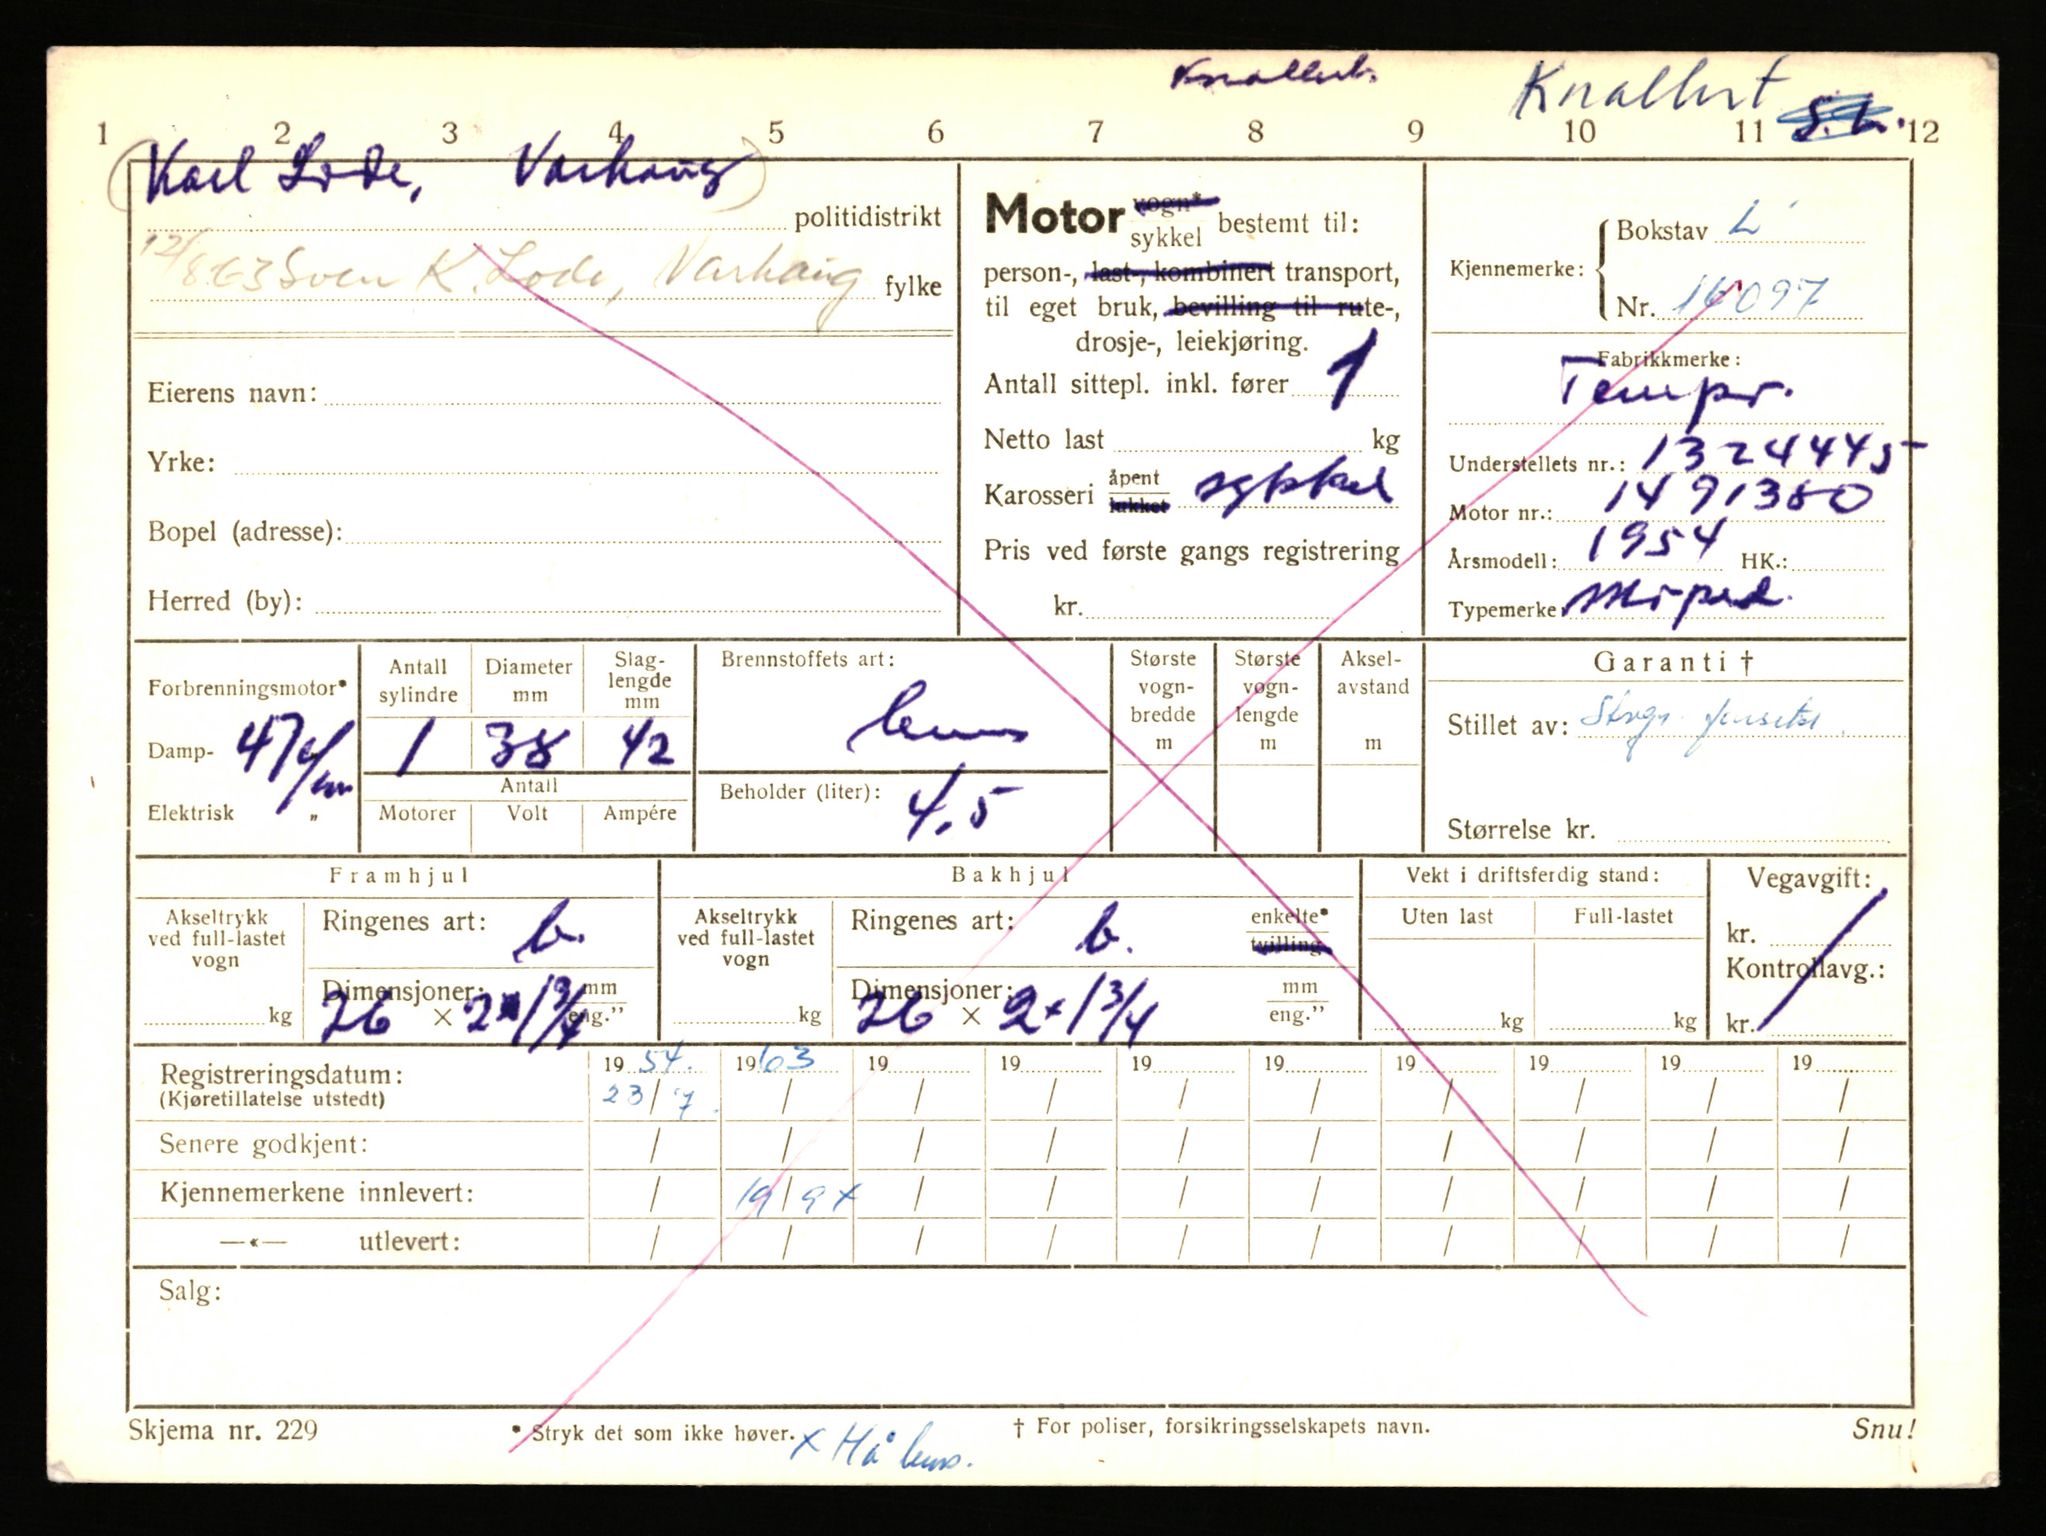 Knallert.
Knallert
S.L.
1 2 3 4 5 6 7 8 9 10 11 12
(Karl Lode, Varhaug)
politidistrikt
12/8 63 Sven K. Lode, Varhaug fylke
Eierens navn:
Yrke:
Bopel (adresse):
Herred (by):
Motor vogn* sykkel bestemt til:
person-, last-, kombinert transport,
til eget bruk, bevilling til rute-,
drosje-, leiekjøring.
Antall sittepl. inkl. fører 1
Netto last kg
Karosseri åpent lukket sykkel
Pris ved første gangs registrering
kr.
Kjennemerke: Bokstav L
Nr. 16097
Fabrikkmerke:
Tempo.
Understellets nr.: 1324445
Motor nr.: 1491380
Årsmodell: 1954 HK.:
Typemerke: Moped.
Forbrenningsmotor*
Damp- "
Elektrisk "
47 c/cm
Antall sylindre 1
Diameter mm 38
Slaglengde mm 42
Antall
Motorer Volt Ampére
Brennstoffets art:
bens
Beholder (liter): 4,5
Største vogn-bredde m
Største vogn-lengde m
Aksel-avstand m
Garanti †
Stillet av:
Størrelse kr.
Framhjul
Akseltrykk ved full-lastet vogn kg
Ringenes art: b.
Dimensjoner: mm eng."
26 × 2 × 1 3/4
Bakhjul
Akseltrykk ved full-lastet vogn kg
Ringenes art: b. enkelte* tvilling
Dimensjoner: mm eng."
26 × 2 × 1 3/4
Vekt i driftsferdig stand:
Uten last Full-lastet
kg kg
Vegavgift:
kr.
Kontrollavg.:
kr.
Registreringsdatum: 19 54. 19 63 19 19 19 19 19 19 19 19
(Kjøretillatelse utstedt) 23/7. / / / / / / / / /
Senere godkjent: / / / / / / / / / /
Kjennemerkene innlevert: / 19/9 x / / / / / / / /
—«— utlevert: / / / / / / / / / /
Salg:
Skjema nr. 229
* Stryk det som ikke høver.
x Hå lens.
† For poliser, forsikringsselskapets navn.
Snu!